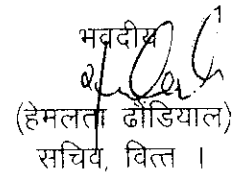 भवदीय
(हेमलता ढौंडियाल)
सचिव, वित्त ।